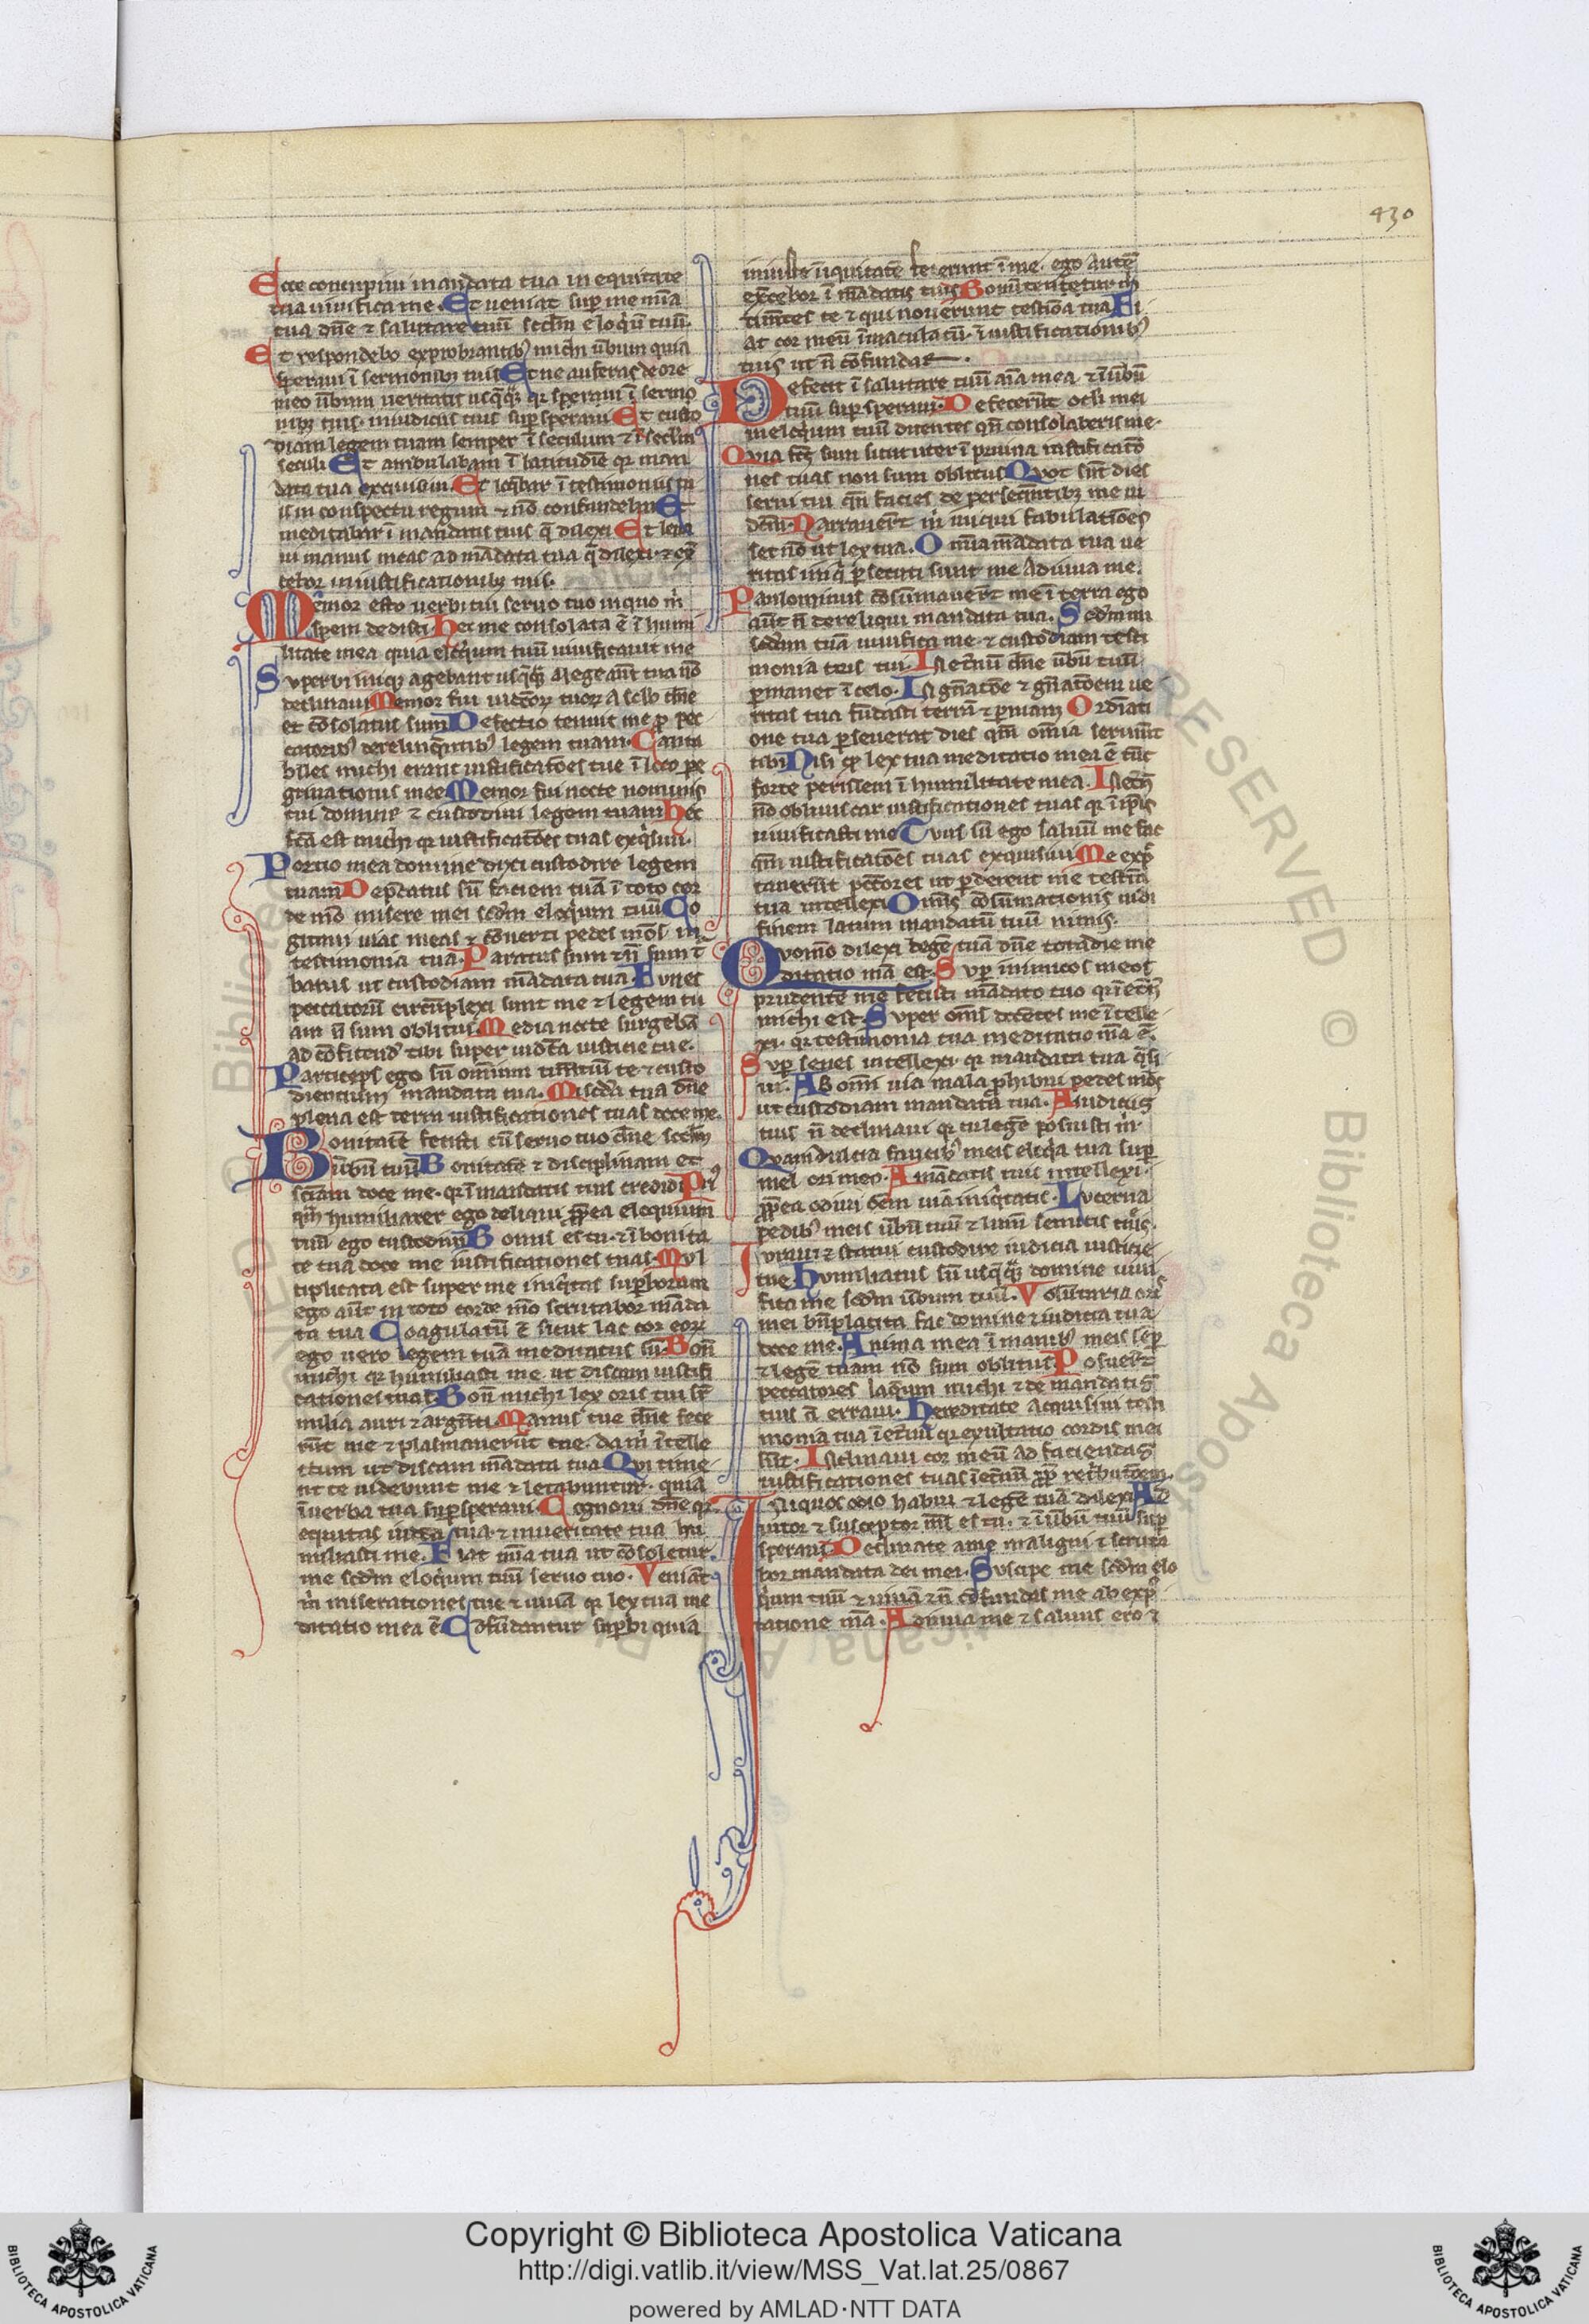 430
Ecce concupiui mandata tua in equitate
tua uiuifica me. Et ueniat sup me mĩa
tua dñe ⁊ salutare tuũ scdm eloq̃ũ tuũ.
Et respondebo exprobrantibꝰ michi ũbum quia
speraui ĩ sermonibꝫ tuis Et ne auferas de ore
meo ũbum ueritatis usq̃q̃ꝫ qꝛ speraui ĩ sermo
nibꝫ tuis. in iudiciis tuis sup speraui Et custo
diam legem tuam semper ĩ seculum ⁊ ĩ seclm
seculi Et ambulabam ĩ latitudĩe qꝛ man
data tua exquisiui. Et loq̃bar ĩ testimoniis tu
is in conspectu regum ⁊ nõ confundebar Et
meditabar ĩ mandatis tuis q̃ dilexi Et leua
ui manus meas ad mãdata tua q̃ dilexi. ⁊ ex̃
cebor in iustificationibꝫ tuis.
Memor esto uerbi tui seruo tuo in quo m̃
spem dedisti. Hec me consolata ẽ ĩ humi
litate mea quia eloq̃um tuũ uiuificauit me
Superbi iniq̃ agebant usq̃q̃ꝫ a lege aũt tua nõ
declinaui Memor fui iudicioꝝ tuoꝝ a sclo dñe
et cõsolatus sum Defectio tenuit me p pec
catoribꝰ derelinq̃ntibꝰ legem tuam. Canta
biles michi erant iustificatões tue ĩ loco pe
grinationis mee Memor fui nocte nominis
tui domine ⁊ custodiui legem tuam Hec
fcã est michi qꝛ iustificatões tuas exq̃siui.
Portio mea domine dixi custodire legem
tuam Dep̃catus sũ faciem tuã ĩ toto cor
de mõ misere mei scdm eloq̃um tuũ Co
gitaui uias meas ⁊ cõuerti pedes mõs in
testimonia tua. Paratus sum ⁊ ñ sum t̃
batus ut custodiam mãdata tua. Funes
peccatorũ circũplexi sunt me ⁊ legem tu
am ñ sum oblitus. Media nocte surgebã
ad cõfitendũ tibi super iudicia iusticie tue.
Particeps ego sũ omnium timẽtiũ te ⁊ custo
dientium mandata tua. Miscdia tua dñe
plena est terra iustificationes tuas doce me.
Bonitatẽ fecisti cũ seruo tuo dñe scdm
ũbũ tuũ Bonitatẽ ⁊ disciplinam et
sciam doce me. qꝛ ĩ mandatis tuis credidi Pri
q̃m humiliarer ego deliqui ꝓpterea eloquium
tuũ ego custodiui Bonus es tu. ⁊ ĩ bonita
te tua doce me iustificationes tuas. Mul
tiplicata est super me iniq̃tas supborum
ego aũt in toto corde mõ scrutabor mãda
ta tua Coagulatũ ẽ sicut lac cor eoꝝ
ego uero legem tuã meditatus sũ. Bonũ
michi qꝛ humiliasti me ut discam iustifi
cationes tuas Bonũ michi lex oris tui sup
milia auri ⁊ argẽti. Manus tue dñe fece
rũt me ⁊ plasmauerũt me. da m̃ ĩtelle
ctum ut discam mãdata tua Qui time
nt te uidebunt me ⁊ letabuntur. quia
ĩ uerba tua supsperaui. Cognoui dñe qꝛ
equitas iudicia tua. ⁊ in ueritate tua hu
miliasti me. Fiat mĩa tua ut cõsoletur
me scdm eloq̃um tuũ seruo tuo. Veniãt
m̃ miserationes tue ⁊ uiuã qꝛ lex tua me
ditatio mea ẽ. Cõfũdantur supbi quia
iniuste iniquitatẽ fecerunt ĩ me. ego autẽ
exc̃ebor ĩ mãdatis tuis Conũtentur m̃
timẽtes te ⁊ qui nouerunt testiõia tua Fi
at cor meũ ĩmaculatũ. ĩ iustificationibꝰ
tuis ut ñ cõfundar.
Defecit ĩ salutare tuũ aĩa mea ⁊ ĩ ũbũ
tuũ supsperaui. Defecerũt ocli mei
in eloq̃um tuũ dicentes qñ consolaberis me.
Quia fc̃s sum sicut uter ĩ pruina iustificatõ
nes tuas non sum oblitus Quot sũt dies
serui tui qñ facies de persequentibꝫ me iu
diciũ. Narrauerũt m̃ iniqui fabulatiões
sed nõ ut lex tua. Omnia mãdata tua ue
ritas iniq̃ p̃secuti sunt me adiuua me.
Paulominus cõsũmauerũt me ĩ terra ego
aũt ñ dereliqui mandata tua. Scdm mi
scdiam tuã uiuifica me. ⁊ custodiam testi
monia oris tui. In etnũ dñe ũbũ tuũ
p̃manet ĩ celo. In gñatõe ⁊ gñatõem ue
ritas tua fũdasti terrã ⁊ pmanꝫ Ordinati
one tua p̃seuerat dies qm̃ omĩa seruiũt
tibi Nisi qꝛ lex tua meditatio mea ẽ tũc
forte perissem ĩ humilitate mea. In etñũ
nõ obliuiscar iustificationes tuas qꝛ ĩ ipĩs
uiuificasti me Tuus sũ ego saluũ me fac
qm̃ iustificatões tuas exquisiui Me exp̃
ctauerũt pccõres ut p̃derent me testiõia
tua intellexi Omnis cõsũmationis uidi
finem latum mandatũ tuũ nimis.
Quomõ dilexi legẽ tuã dñe tota die me
ditatio mã est. Sup inimicos meos
prudentẽ me fecisti mãdato tuo qꝛ ĩ etñũ
michi est. Super oms docẽtes me ĩtelle
xi. qꝛ testimonia tua meditatio mã ẽ.
Sup senes intellexi. qꝛ mandata tua q̃si
ui. Ab omĩ uia mala phibui pedes mõs
ut custodiam mandata tua. A iudiciis
tuis ñ declinaui qꝛ tu legẽ posuisti m̃.
Quam dulcia faucibꝰ meis eloq̃a tua sup
mel ori meo. A mãdatis tuis intellexi.
ꝓpterea odiui oẽm uiã iniq̃tatis. Lucerna
pedibꝰ meis ũbũ tuũ ⁊ lumẽ semitis meis.
Iuraui ⁊ statui custodire iudicia iusticie
tue Humiliatus sũ usq̃q̃ꝫ domine uiui
fica me scdm ũbum tuũ. Voluntaria oris
mei bñplacita fac domine ⁊ iudicia tua
doce me. Anima mea ĩ manibꝰ meis sep
⁊ legẽ tuam nõ sum oblitus. Posuerũt
peccatores laq̃um michi ⁊ de mandatis
tuis ñ erraui. Hereditate acquisiui testi
monia tua ĩ etnũ qꝛ exultatio cordis mei
sũt. Inclinaui cor meũ ad faciendas
iustificationes tuas ĩ etnũ ꝓpter ret̃butõem.
Iniquos odio habui ⁊ legẽ tuã dilexi Ad
iutor ⁊ susceptor ms̃ es tu. ⁊ ĩ ũbũ tuũ sup
speraui Declinate a me maligni ⁊ scruta
bor mandata dei mei. Suscipe me scdm elo
q̃um tuũ ⁊ uiuã ⁊ ñ cõfundas me ab exp̃
ctatione mã. Adiuua me ⁊ saluus ero ⁊
Copyright © Biblioteca Apostolica Vaticana
http://digi.vatlib.it/view/MSS_Vat.lat.25/0867
powered by AMLAD·NTT DATA
BIBLIOTECA APOSTOLICA VATICANA
BIBLIOTECA APOSTOLICA VATICANA